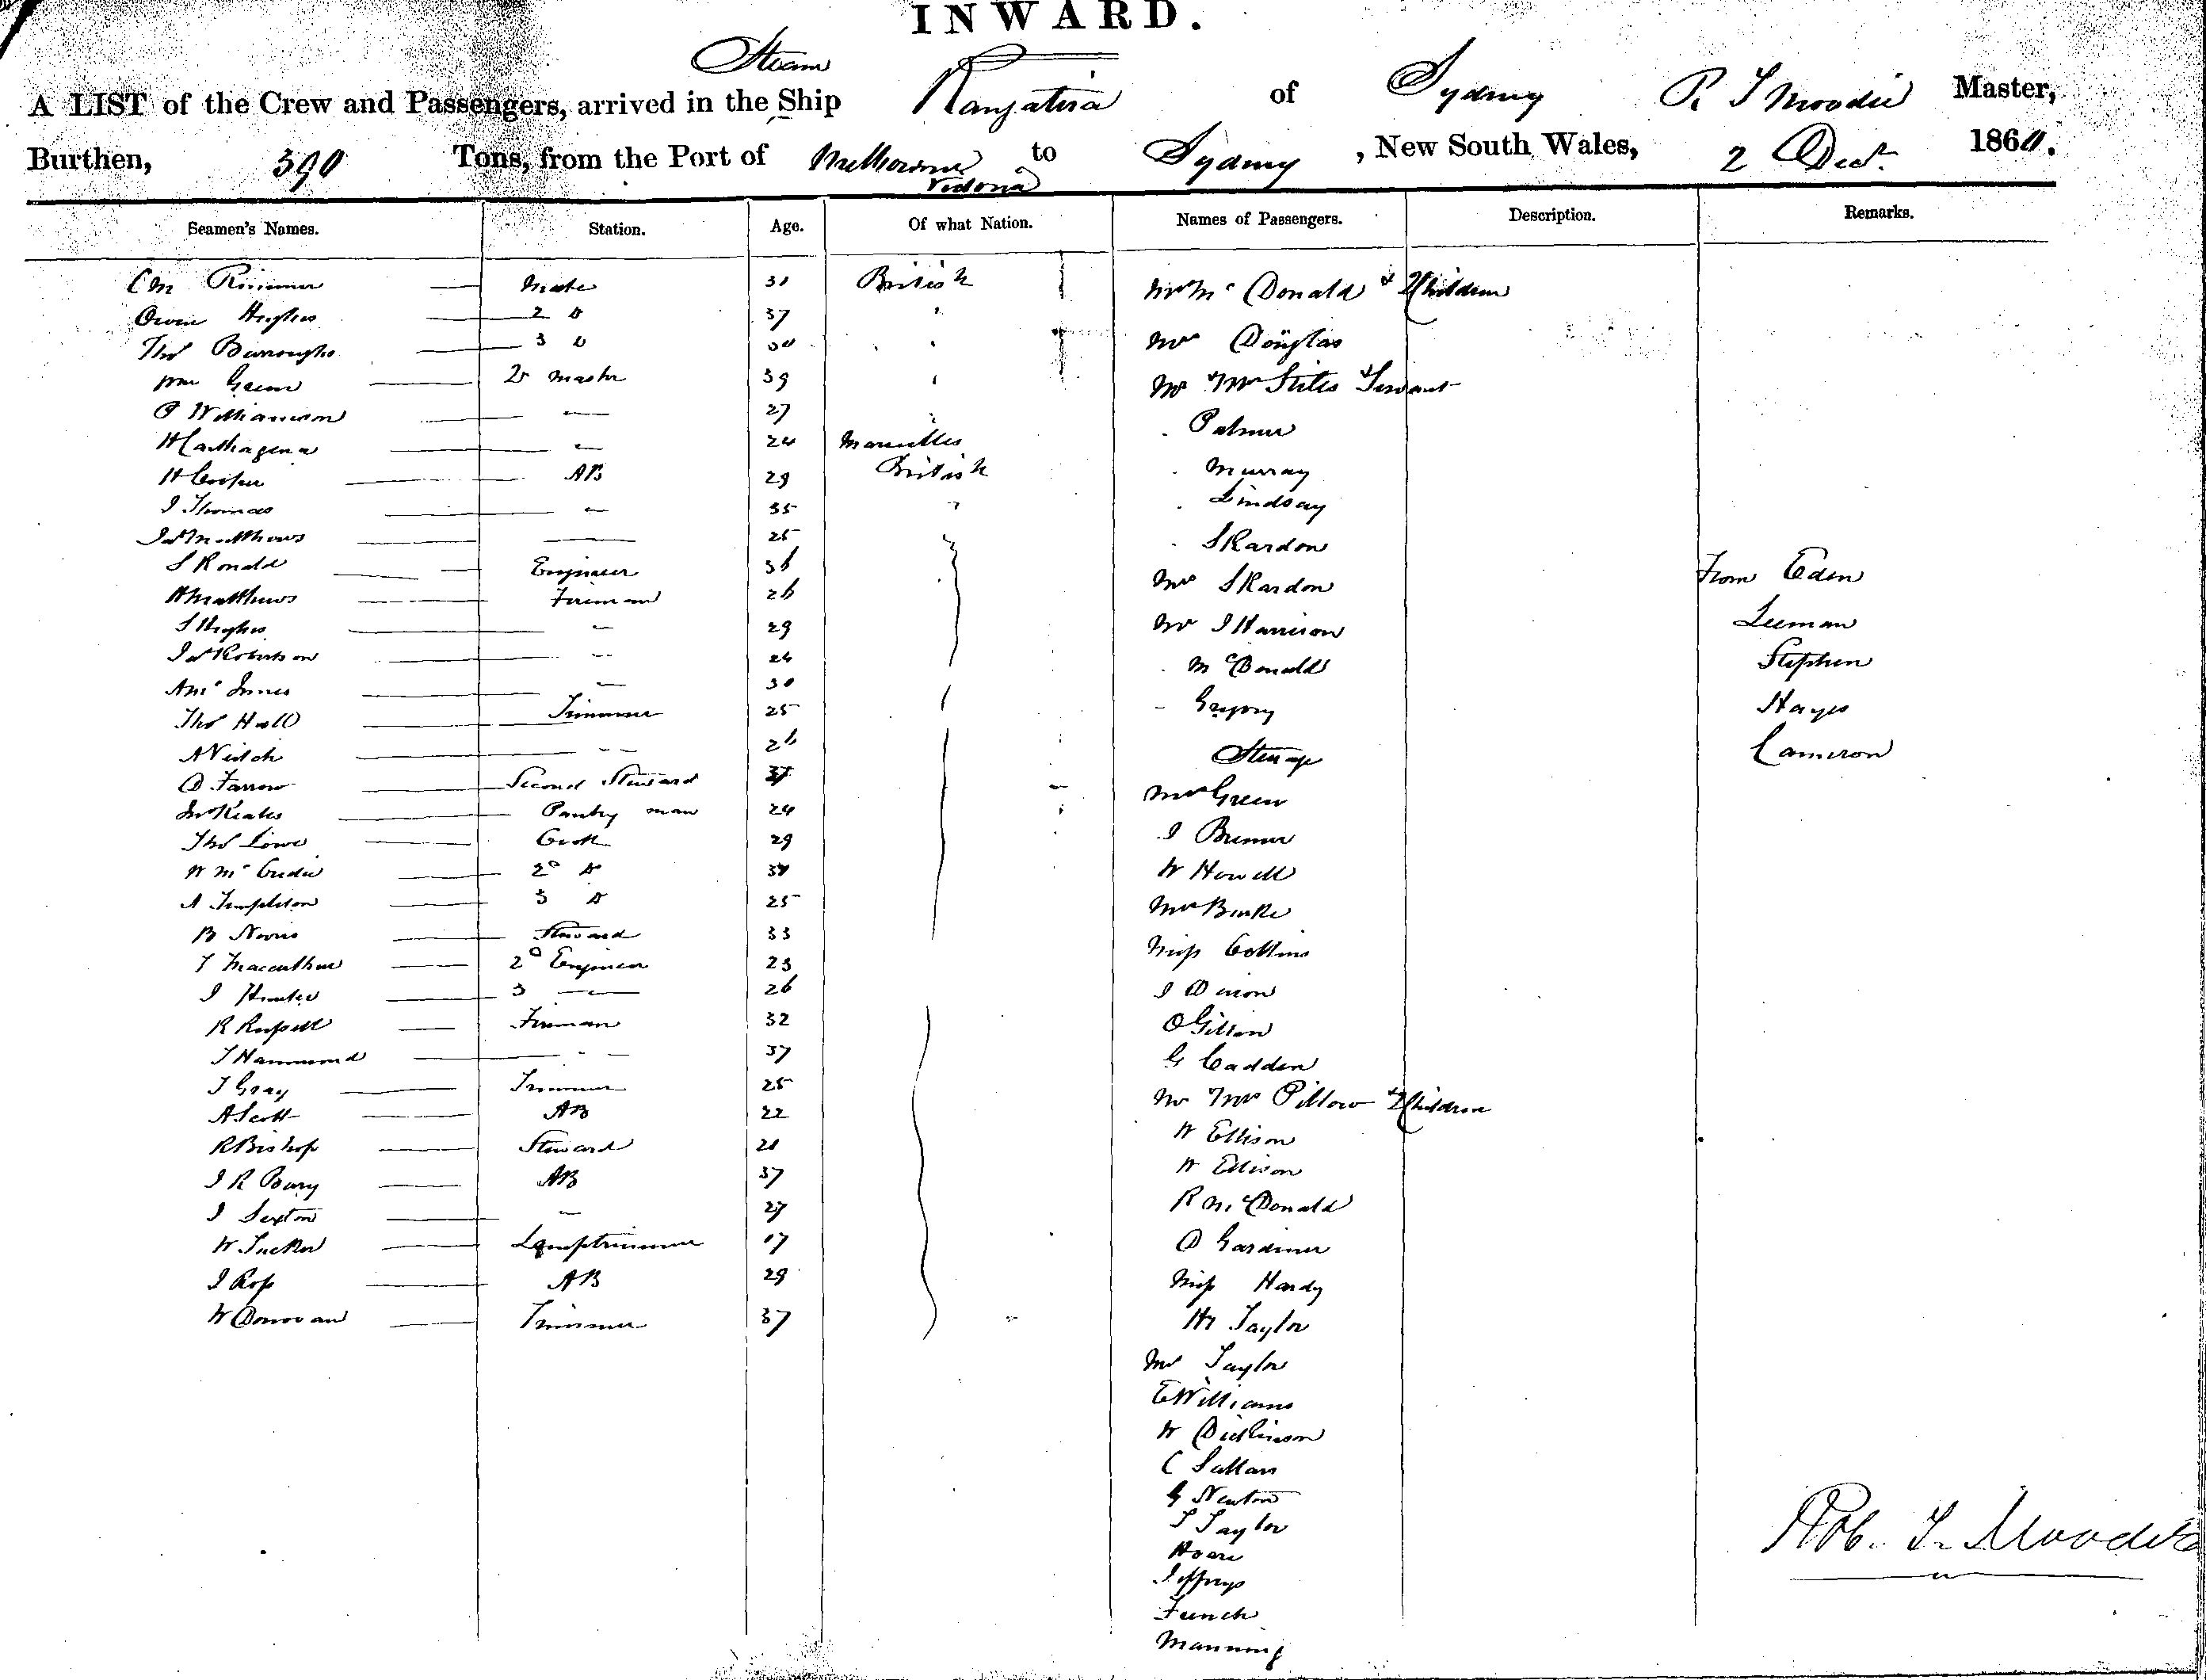 INWARD.
Steam
A LIST of the Crew and Passengers, arrived in the Ship Rangatira of Sydney R T Moodie Master,
Burthen, 390 Tons, from the Port of Melbourne to Sydney, New South Wales, 2 Decr 1864.
Victoria
Seamen's Names. Station. Age. Of what Nation. Names of Passengers. Description. Remarks.
C M Rimmer Mate 31 British Mrs Mc Donald & 2 Children
Owen Hughes 2 Do 37 " Mrs Douglas
Thos Burroughs 3 Do 30 " Mr & Mrs Stiles & Servant
Wm Green Qr Master 39 " Palmer
P Williamson — 27 " Murray
H Carthagena — 24 Marseilles Lindsay
H Cooper AB 29 British Skardon
J Thomas — 35 " Mrs Skardon From Eden
Jas Matthews — 25 Mr J Harrison Leeman
S Ronald Engineer 36 McDonald Stephen
H Matthews Fireman 26 Gregory Hayes
S Hughes — 29 Steerage Cameron
Jas Robertson — 24 Mrs Green
Innes — 30 J Bremer
Thos Hall Trimmer 25 W Howell
A Veitch — 26 Mrs Burke
D Farrow Second Steward Miss Collins
Jno Keates Pantry man 24 J Dixon
Thos Lowe Cook 29 O Gillan
W Mc 2d Do G Cadden
A Templeton 3 Do 25 Mr & Mrs Pillow & 2 Children
B Norris Steward 33 W Ellison
T Macarthur 2d Engineer 23 W Ellison
J Hunter 3 — 26 R McDonald
R Russell Fireman 32 D Gardiner
T Hammond — 37 Miss Hardy
T Gray Trimmer 25 Hy Taylor
A Scott AB 22 Mrs Taylor
R Bishop Steward 21 E Williams
J R Barry AB 37 W Dickinson
J Sexton — 27 C
W Tucker Lamptrimmer 17 G Newton
J Ross AB 29 T Taylor
W Donovan Trimmer 37 Hoare
Jeffreys
French
Manning
Rob. T. Moodie